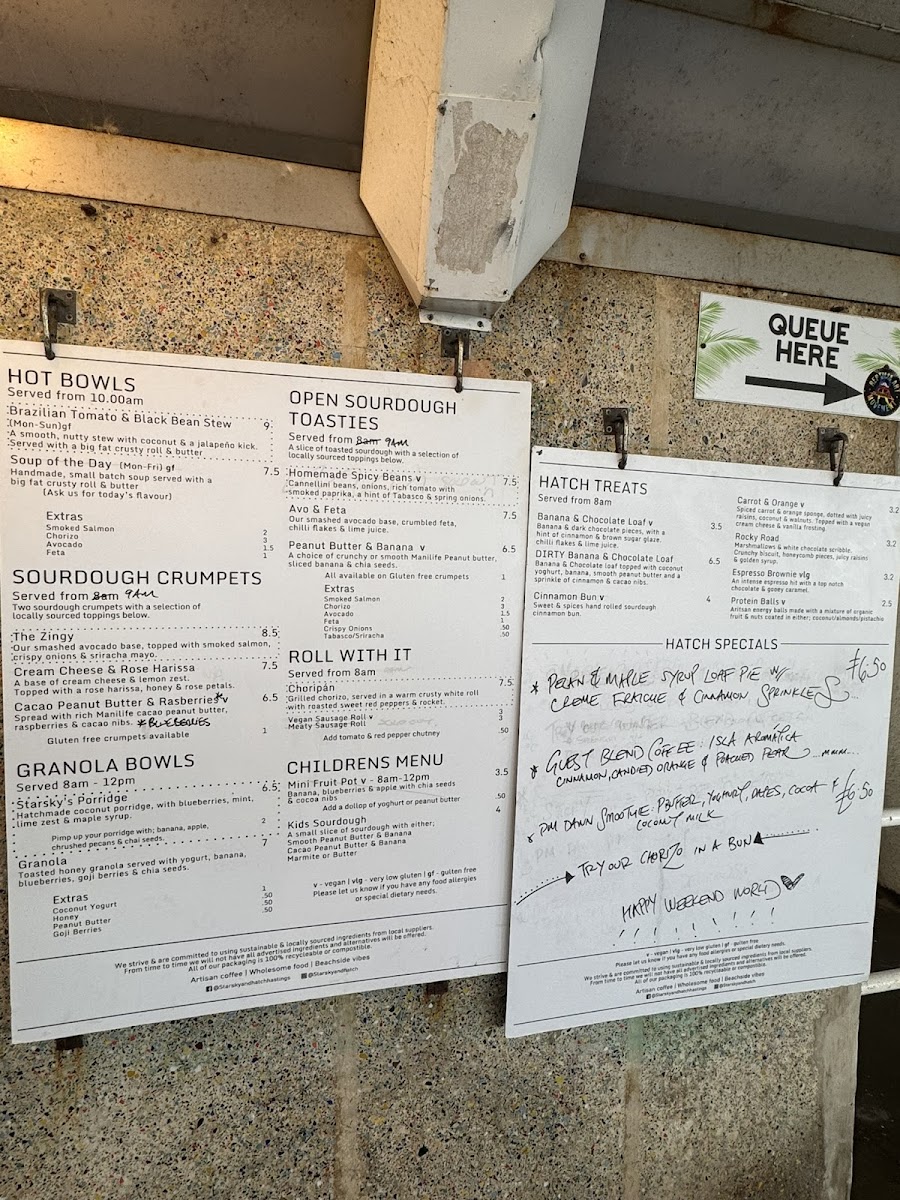 HOT BOWLS
Served from 10.00am
Brazilian Tomato & Black Bean Stew 9
(Mon-Sun)gf
A smooth, nutty stew with coconut & a jalapeño kick.
Served with a big fat crusty roll & butter
Soup of the Day (Mon-Fri) gf 7.5
Handmade, small batch soup served with a
big fat crusty roll & butter
(Ask us for today's flavour)
Extras
Smoked Salmon 2
Chorizo 3
Avocado 1.5
Feta 1
SOURDOUGH CRUMPETS
Served from 8am 9AM
Two sourdough crumpets with a selection of
locally sourced toppings below.
The Zingy 8.5
Our smashed avocado base, topped with smoked salmon,
crispy onions & sriracha mayo.
Cream Cheese & Rose Harissa 7.5
A base of cream cheese & lemon zest.
Topped with a rose harissa, honey & rose petals.
Cacao Peanut Butter & Rasberries* v 6.5
Spread with rich Manilife cacao peanut butter,
raspberries & cacao nibs. *BLUEBERRIES
Gluten free crumpets available 1
GRANOLA BOWLS
Served 8am - 12pm
Starsky's Porridge 6.5
Hatchmade coconut porridge, with blueberries, mint,
lime zest & maple syrup.
Pimp up your porridge with; banana, apple, 2
chrushed pecans & chai seeds.
Granola 7
Toasted honey granola served with yogurt, banana,
blueberries, goji berries & chia seeds.
Extras
Coconut Yogurt 1
Honey .50
Peanut Butter .50
Goji Berries .50
OPEN SOURDOUGH
TOASTIES
Served from 8am 9AM
A slice of toasted sourdough with a selection of
locally sourced toppings below.
Homemade Spicy Beans v 7.5
Cannellini beans, onions, rich tomato with
smoked paprika, a hint of Tabasco & spring onions.
Avo & Feta 7.5
Our smashed avocado base, crumbled feta,
chilli flakes & lime juice.
Peanut Butter & Banana v 6.5
A choice of crunchy or smooth Manilife Peanut butter,
sliced banana & chia seeds.
All available on Gluten free crumpets 1
Extras
Smoked Salmon 2
Chorizo 3
Avocado 1.5
Feta 1
Crispy Onions .50
Tabasco/Sriracha .50
ROLL WITH IT
Served from 8am
Choripán 7.5
Grilled chorizo, served in a warm crusty white roll
with roasted sweet red peppers & rocket.
Vegan Sausage Roll v 3
Meaty Sausage Roll 3
Add tomato & red pepper chutney .50
CHILDRENS MENU
Mini Fruit Pot v - 8am-12pm 3.5
Banana, blueberries & apple with chia seeds
& cocoa nibs
Add a dollop of yoghurt or peanut butter .50
Kids Sourdough 4
A small slice of sourdough with either;
Smooth Peanut Butter & Banana
Cacao Peanut Butter & Banana
Marmite or Butter
v - vegan | vlg - very low gluten | gf - gulten free
Please let us know if you have any food allergies
or special dietary needs.
We strive & are committed to using sustainable & locally sourced ingredients from local suppliers.
From time to time we will not have all advertised ingredients and alternatives will be offered.
All of our packaging is 100% recycleable or compostible.
Artisan coffee | Wholesome food | Beachside vibes
@Starskyandhatchhastings @Starskyandhatch
QUEUE
HERE
HATCH TREATS
Served from 8am
Banana & Chocolate Loaf v 3.5
Banana & dark chocolate pieces, with a
hint of cinnamon & brown sugar glaze.
chilli flakes & lime juice.
DIRTY Banana & Chocolate Loaf 6.5
Banana & Chocolate Loaf topped with coconut
yoghurt, banana, smooth peanut butter and a
sprinkle of cinnamon & cacao nibs.
Cinnamon Bun v 4
Sweet & spices hand rolled sourdough
cinnamon bun.
Carrot & Orange v 3.2
Spiced carrot & orange sponge, dotted with juicy
raisins, coconut & walnuts. Topped with a vegan
cream cheese & vanilla frosting.
Rocky Road 3.2
Marshmallows & white chocolate scribble.
Crunchy biscuit, honeycomb pieces, juicy raisins
& golden syrup.
Espresso Brownie vlg 3.2
An intense espresso hit with a top notch
chocolate & gooey caramel.
Protein Balls v 2.5
Aritsan energy balls made with a mixture of organic
fruit & nuts coated in either; coconut/almonds/pistachio
HATCH SPECIALS
* PECAN & MAPLE SYRUP LOAF PIE W/ £6.50
CREME FRAICHE & CINNAMON SPRINKLES...
* GUEST BLEND COFFEE: ISLA AROMATICA
CINNAMON, CANDIED ORANGE & POACHED PEAR ...MMM...
* PM DAWN SMOOTHIE: P.BUTTER, YOGHURT, DATES, COCOA & £6.50
COCONUT MILK
TRY OUR CHORIZO IN A BUN
HAPPY WEEKEND WORLD
v - vegan | vlg - very low gluten | gf - gulten free
Please let us know if you have any food allergies or special dietary needs.
We strive & are committed to using sustainable & locally sourced ingredients from local suppliers.
From time to time we will not have all advertised ingredients and alternatives will be offered.
All of our packaging is 100% recycleable or compostible.
Artisan coffee | Wholesome food | Beachside vibes
@Starskyandhatchhastings @Starskyandhatch